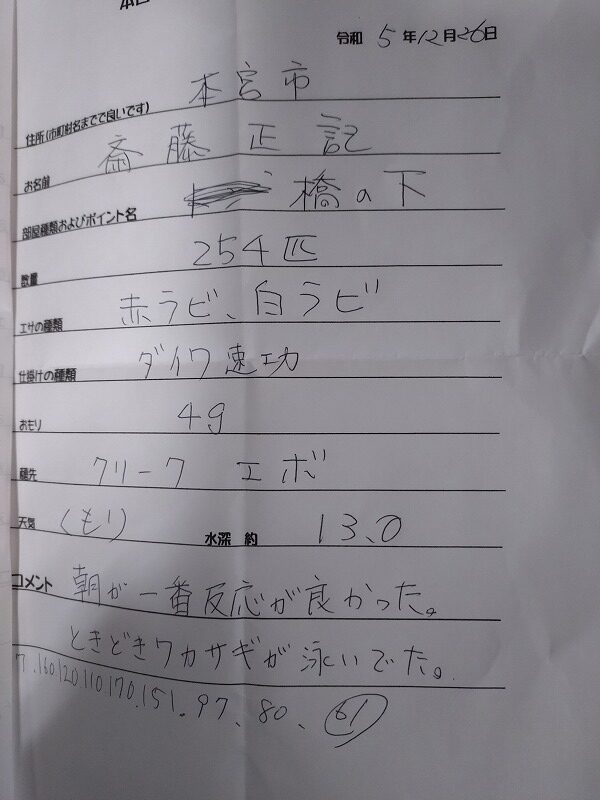 令和 5年12月26日
本宮市
住所(市町村名まで良いです)
斎藤正記
お名前
橋の下
部屋種類およびポイント名
254匹
数量
赤ラビ、白ラビ
エサの種類
ダイワ速攻
仕掛けの種類
4g
おもり
クリーク エボ
穂先
天気 くもり 水深 約 13.0
コメント 朝が一番反応が良かった。
ときどきワカサギが泳いでた。
160.120.110.170.151.97、80、61